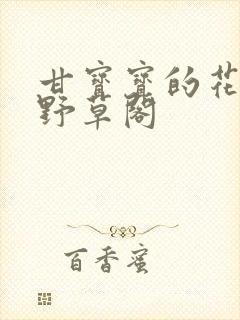 甘寳寳的花
野草閣
百香蜜